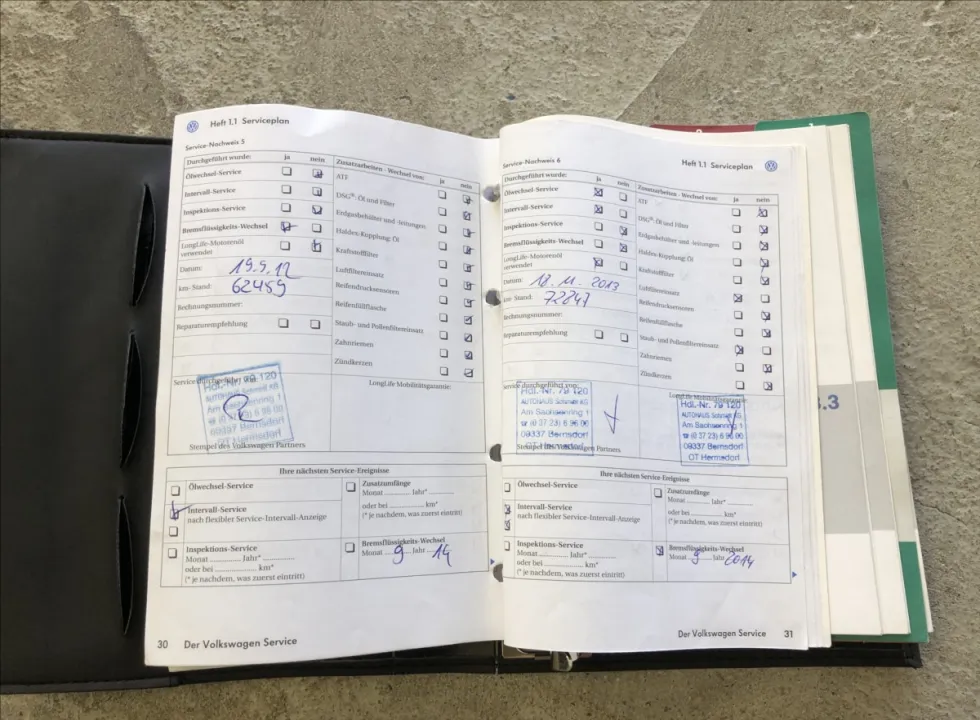 Heft 1.1 Serviceplan
Service-Nachweis 5
Durchgeführt wurde: ja nein
Ölwechsel-Service
Intervall-Service
Inspektions-Service
Bremsflüssigkeits-Wechsel
LongLife-Motorenöl
verwendet
Datum: 19.9.12
km- Stand: 62459
Rechnungsnummer:
Reparaturempfehlung
Zusatzarbeiten - Wechsel von: ja nein
ATF
DSG®-Öl und Filter
Erdgasbehälter und -leitungen
Haldex-Kupplung: Öl
Kraftstofffilter
Luftfiltereinsatz
Reifendrucksensoren
Reifenfüllflasche
Staub- und Pollenfiltereinsatz
Zahnriemen
Zündkerzen
Service durchgeführt von:
LongLife Mobilitätsgarantie:
Hdl.-Nr. 79 120
AUTOHAUS Schmidt KG
Am Sachsenring 1
☎ (0 37 23) 6 96 00
09337 Bernsdorf
OT Hermsdorf
Stempel des Volkswagen Partners
Ihre nächsten Service-Ereignisse
Ölwechsel-Service
Intervall-Service
nach flexibler Service-Intervall-Anzeige
Inspektions-Service
Monat ............ Jahr* ............
oder bei ............ km*
(* je nachdem, was zuerst eintritt)
Zusatzumfänge
Monat ............ Jahr* ............
oder bei ............ km*
(* je nachdem, was zuerst eintritt)
Bremsflüssigkeits-Wechsel
Monat 9 Jahr 14
30 Der Volkswagen Service
Heft 1.1 Serviceplan
Service-Nachweis 6
Durchgeführt wurde: ja nein
Ölwechsel-Service
Intervall-Service
Inspektions-Service
Bremsflüssigkeits-Wechsel
LongLife-Motorenöl
verwendet
Datum: 18.11.2013
km- Stand: 72247
Rechnungsnummer:
Reparaturempfehlung
Zusatzarbeiten - Wechsel von: ja nein
ATF
DSG®-Öl und Filter
Erdgasbehälter und -leitungen
Haldex-Kupplung: Öl
Kraftstofffilter
Luftfiltereinsatz
Reifendrucksensoren
Reifenfüllflasche
Staub- und Pollenfiltereinsatz
Zahnriemen
Zündkerzen
Service durchgeführt von:
Hdl.-Nr. 79 120
AUTOHAUS Schmidt KG
Am Sachsenring 1
☎ (0 37 23) 6 96 00
09337 Bernsdorf
OT Hermsdorf
Stempel des Volkswagen Partners
LongLife Mobilitätsgarantie:
Hdl.-Nr. 79 120
AUTOHAUS Schmidt KG
Am Sachsenring 1
☎ (0 37 23) 6 96 00
09337 Bernsdorf
OT Hermsdorf
Ihre nächsten Service-Ereignisse
Ölwechsel-Service
Intervall-Service
nach flexibler Service-Intervall-Anzeige
Inspektions-Service
Monat ............ Jahr* ............
oder bei ............ km*
(* je nachdem, was zuerst eintritt)
Zusatzumfänge
Monat ............ Jahr* ............
oder bei ............ km*
(* je nachdem, was zuerst eintritt)
Bremsflüssigkeits-Wechsel
Monat 9 Jahr 2014
Der Volkswagen Service 31
3.3